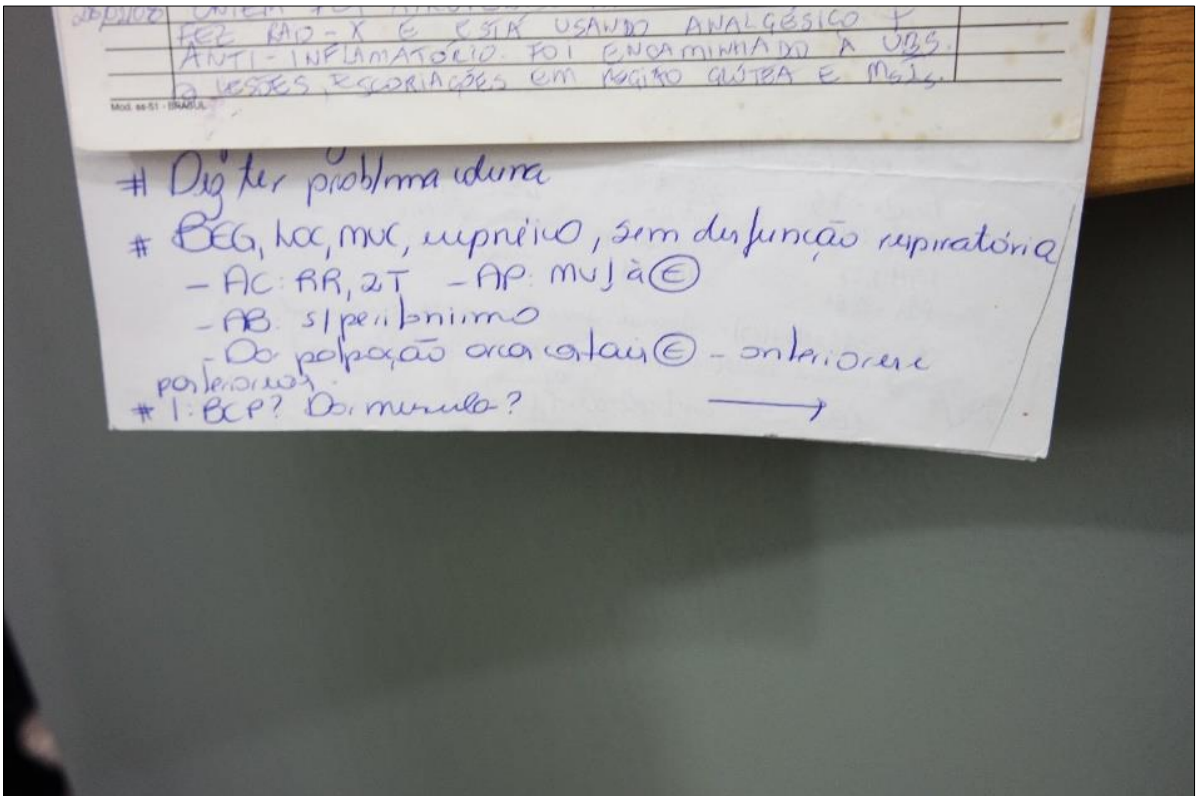 ONTEM FOI
FEZ RAO-X E ESTÁ USANDO ANALGÉSICO +
ANTI-INFLAMATÓRIO. FOI ENCAMINHADO A UBS.
LESÕES, ESCORIAÇÕES em REGIÃO GLÚTEA E MsIs.
Mod. - BRASUL
# Diz ter problma coluna
# BEG, LOC, MUC, eupneico, sem disfunção respiratória
- AC: RR, 2T - AP: MV↓ à Ⓔ
- AB: s/peritonismo
- Dor palpação arca costais Ⓔ - anteriores e
posteriores.
# I: BCP? Dor muscula? →